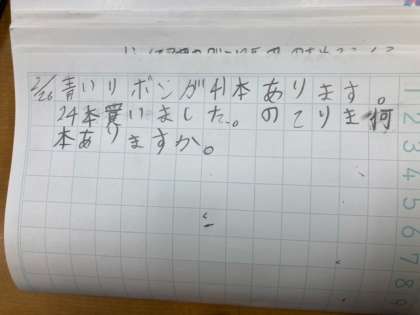 2/26 青いリボンが41本あります。
24本買いました。のこりは何
本ありますか。
1
2
3
4
5
6
7
8
9